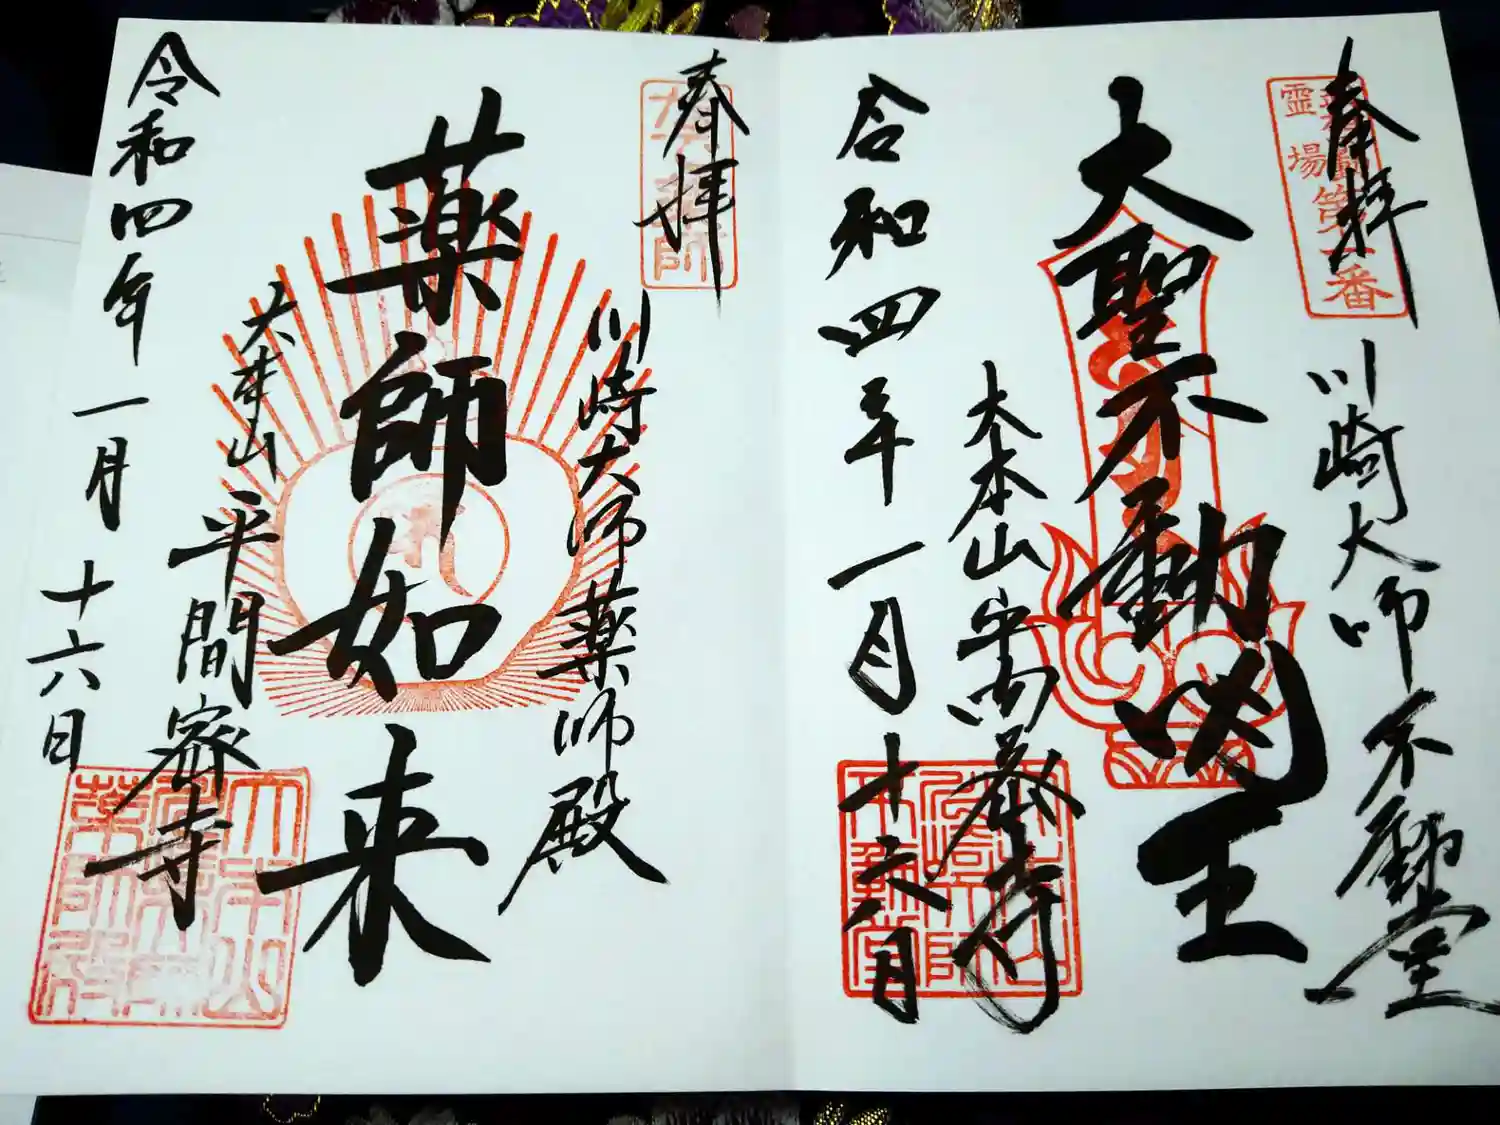 奉拝
川崎大師不動堂
霊場
第一番
大聖不動明王
大本山平間寺
令和四年一月十六日
奉拝
川崎大師薬師殿
薬師如来
大本山平間密寺
令和四年一月十六日